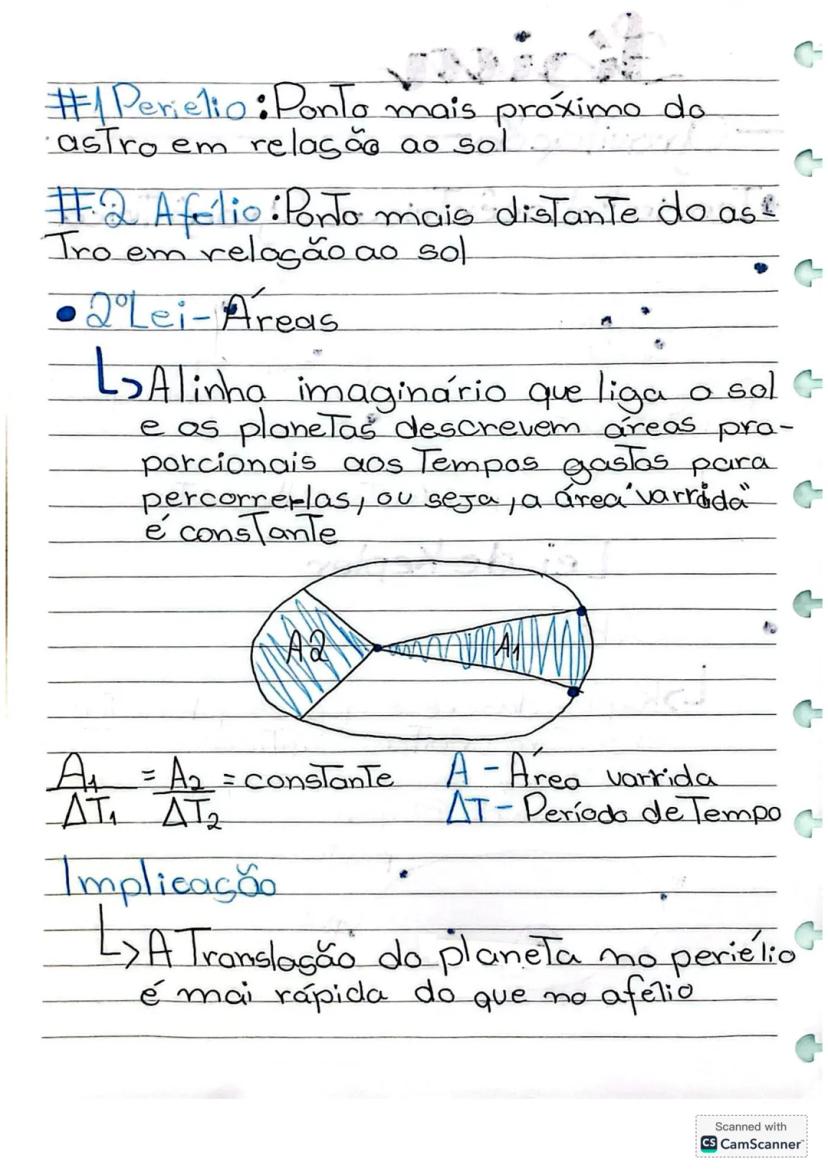 #1 Periélio: Ponto mais próximo do
astro em relação ao sol
#2 Afélio: Ponto mais distante do as-
tro em relação ao sol
• 2º Lei - Áreas
↳ A linha imaginário que liga o sol
e os planetas descrevem áreas pro-
porcionais aos tempos gastos para
percorrer-las, ou seja, a área "varrida"
é constante
A2 A1
A1/ΔT1 = A2/ΔT2 = constante A - Área varrida
ΔT - Período de Tempo
Implicação
↳ A Translação do planeta no periélio
é mai rápida do que no afélio
Scanned with
CS CamScanner